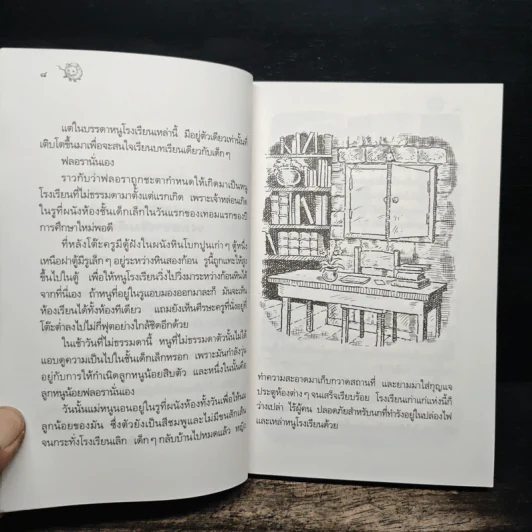 ๘
แต่ในบรรดาหนูโรงเรียนเหล่านี้ มีอยู่ตัวเดียวเท่านั้นที่
เติบโตขึ้นมาเพื่อจะสนใจเรียนบทเรียนเดียวกับเด็กๆ
ฟลอรานั่นเอง
ราวกับว่าฟลอราถูกชะตากำหนดให้เกิดมาเป็นหนู
โรงเรียนที่ไม่ธรรมดามาตั้งแต่แรกเกิด เพราะเจ้าหล่อนเกิด
ในรูที่ผนังห้องชั้นเด็กเล็กในวันแรกของเทอมแรกของปี
การศึกษาใหม่พอดี
ที่หลังโต๊ะครูมีตู้ฝังในผนังหินโบกปูนเก่าๆ ตู้หนึ่ง
เหนือฝาตู้มีรูเล็กๆ อยู่ระหว่างหินสองก้อน รูนี้ถูกแทะให้
ขึ้นไปในตู้ เพื่อให้หนูโรงเรียนวิ่งไปวิ่งมาระหว่างก้อนหินได้
จากที่นี่เอง ถ้าหนูที่อยู่ในรูแอบมองออกมาละก็ มันจะเห็น
ห้องเรียนได้ทั้งห้องทีเดียว แถมยังเห็นศีรษะครูที่นั่งอยู่ที่
โต๊ะต่ำลงไปไม่กี่ฟุตอย่างใกล้ชิดอีกด้วย
ในเช้าวันที่ไม่ธรรมดานี้ หนูที่ไม่ธรรมดาตัวนั้นไม่ได้
แอบดูความเป็นไปในชั้นเด็กเล็กหรอก เพราะมันกำลัง
อยู่กับการให้กำเนิดลูกหนูน้อยสิบตัว และหนึ่งในนั้นคือ
ลูกหนูน้อยฟลอรานั่นเอง
วันนั้นแม่หนูนอนอยู่ในรูที่ผนังห้องทั้งวันเพื่อให้นม
ลูกน้อยของมัน ซึ่งตัวยังเป็นสีชมพูและไม่มีขนสักเส้น
จนกระทั่งโรงเรียนเลิก เด็กๆ กลับบ้านไปหมดแล้ว
ทำความสะอาดมาเก็บกวาดสถานที่ และยามมาใส่กุญแจ
ประตูห้องต่างๆ จนเสร็จเรียบร้อย โรงเรียนเก่าแก่แห่งนี้ก็
ว่างเปล่า ไร้ผู้คน ปลอดภัยสำหรับนกที่ทำรังอยู่ในปล่องไฟ
และเหล่าหนูโรงเรียนด้วย